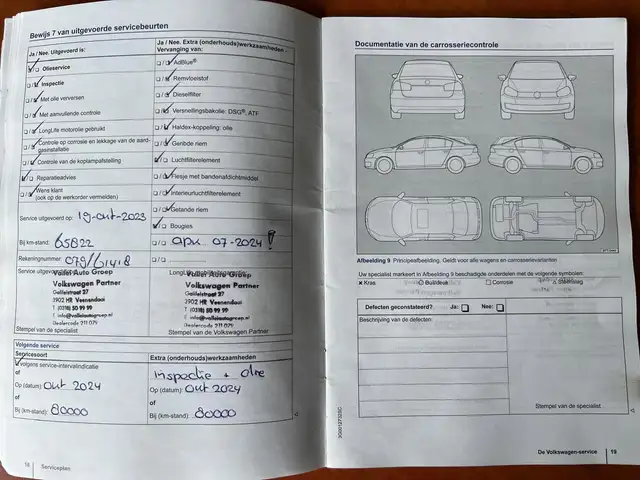 Bewijs 7 van uitgevoerde servicebeurten
Ja / Nee. Uitgevoerd is:
Ja / Nee. Extra (onderhouds)werkzaamheden
Vervanging van:
Olieservice
AdBlue®
Inspectie
Remvloeistof
Met olie verversen
Dieselfilter
Met aanvullende controle
Versnellingsbakolie: DSG®, ATF
LongLife motorolie gebruikt
Haldex-koppeling: olie
Controle op corrosie en lekkage van de aard-
gasinstallatie
Geribde riem
Controle van de koplampafstelling
Luchtfilterelement
Reparatieadvies
Flesje met bandenafdichtmiddel
Wens klant
(ook op de werkorder vermelden)
Interieurluchtfilterelement
Getande riem
Service uitgevoerd op: 19-okt-2023
Bougies
Bij km-stand: 65822
apk 07-2024!
Rekeningnummer: 079/61418
Service uitgevoerd
LongLife
Vallei Auto Groep
Volkswagen Partner
Galileistraat 27
3902 HR Veenendaal
T (0318) 50 99 99
I info@valleiautogroep.nl
Dealercode 211 071
Stempel van de specialist
Vallei Auto Groep
Volkswagen Partner
Galileistraat 27
3902 HR Veenendaal
T (0318) 50 99 99
I info@valleiautogroep.nl
Dealercode 211 071
Stempel van de Volkswagen Partner
Volgende service
Servicesoort
Extra (onderhouds)werkzaamheden
volgens service-intervalindicatie
inspectie + olie
of
Op (datum): okt 2024
Op (datum): okt 2024
of
of
Bij (km-stand): 80000
Bij (km-stand): 80000
18 Serviceplan
Documentatie van de carrosseriecontrole
Afbeelding 9 Principeafbeelding. Geldt voor alle wagens en carrosserievarianten
Uw specialist markeert in Afbeelding 9 beschadigde onderdelen met de volgende symbolen:
× Kras
○ Buil/deuk
□ Corrosie
△ Steenslag
Defecten geconstateerd? Ja: Nee:
Beschrijving van de defecten:
Stempel van de specialist
De Volkswagen-service 19